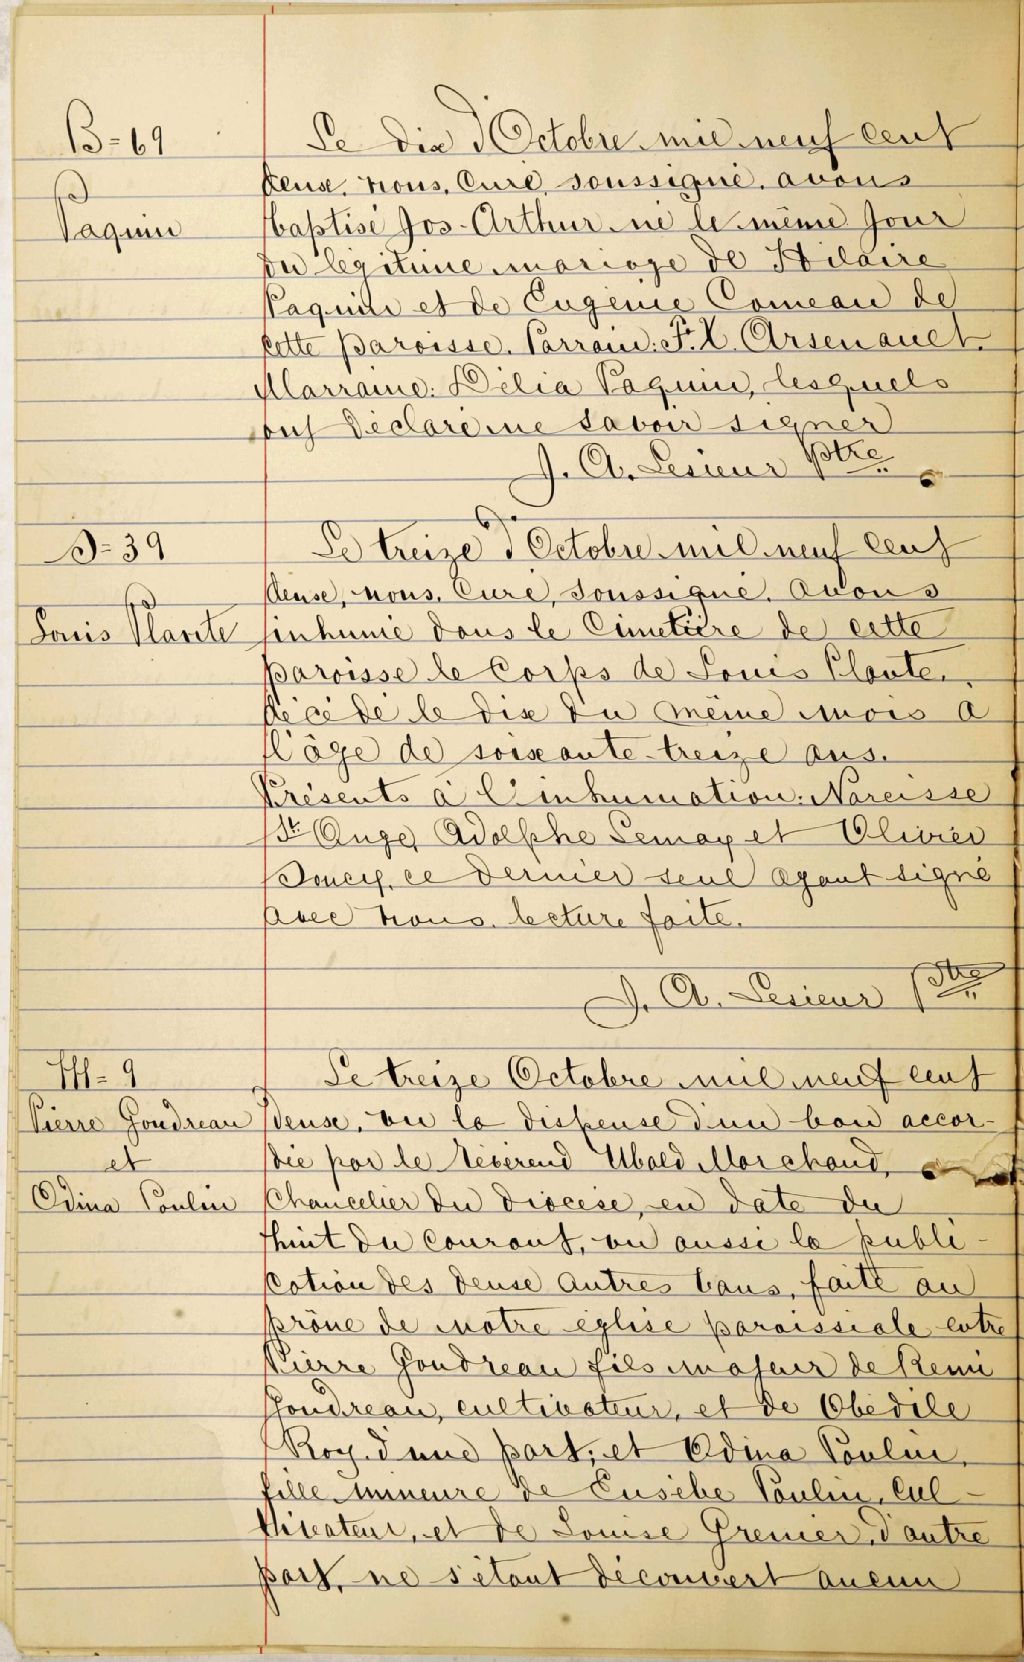 B=69
Paquin
Le dix d'Octobre mil neuf cent
deux, nous, Curé, soussigné, avons
baptisé Jos-Arthur né le même jour
du légitime mariage de Hilaire
Paquin et de Eugénie Comeau de
cette paroisse. Parrain: F. X. Arsenault.
Marraine: Délia Paquin, lesquels
ont déclaré ne savoir signer
J. A. Lesieur Ptre
S=39
Louis Plante
Le treize d'Octobre mil neuf cent
deux, nous, Curé, soussigné, avons
inhumé dans le Cimetière de cette
paroisse le Corps de Louis Plante,
décédé le dix du même mois à
l'âge de soixante-treize ans.
Présents à l'inhumation: Narcisse
St Ange, Adolphe Lemay et Olivier
Doucet, ce dernier seul ayant signé
avec nous, lecture faite.
J. A. Lesieur Ptre
M=9
Pierre Goudreau
et
Odina Poulin
Le treize Octobre mil neuf cent
deux, vu la dispense d'un ban accor-
dée par le Révérend Ubald Marchand,
Chancelier du diocèse, en date du
huit du courant, vu aussi la publi-
cation des deux autres bans, faite au
prône de notre église paroissiale entre
Pierre Goudreau fils majeur de Remi
Goudreau, cultivateur, et de Obédile
Roy, d'une part; et Odina Poulin,
fille mineure de Eusèbe Poulin, cul-
tivateur, et de Louise Grenier, d'autre
part, ne s'étant découvert aucun